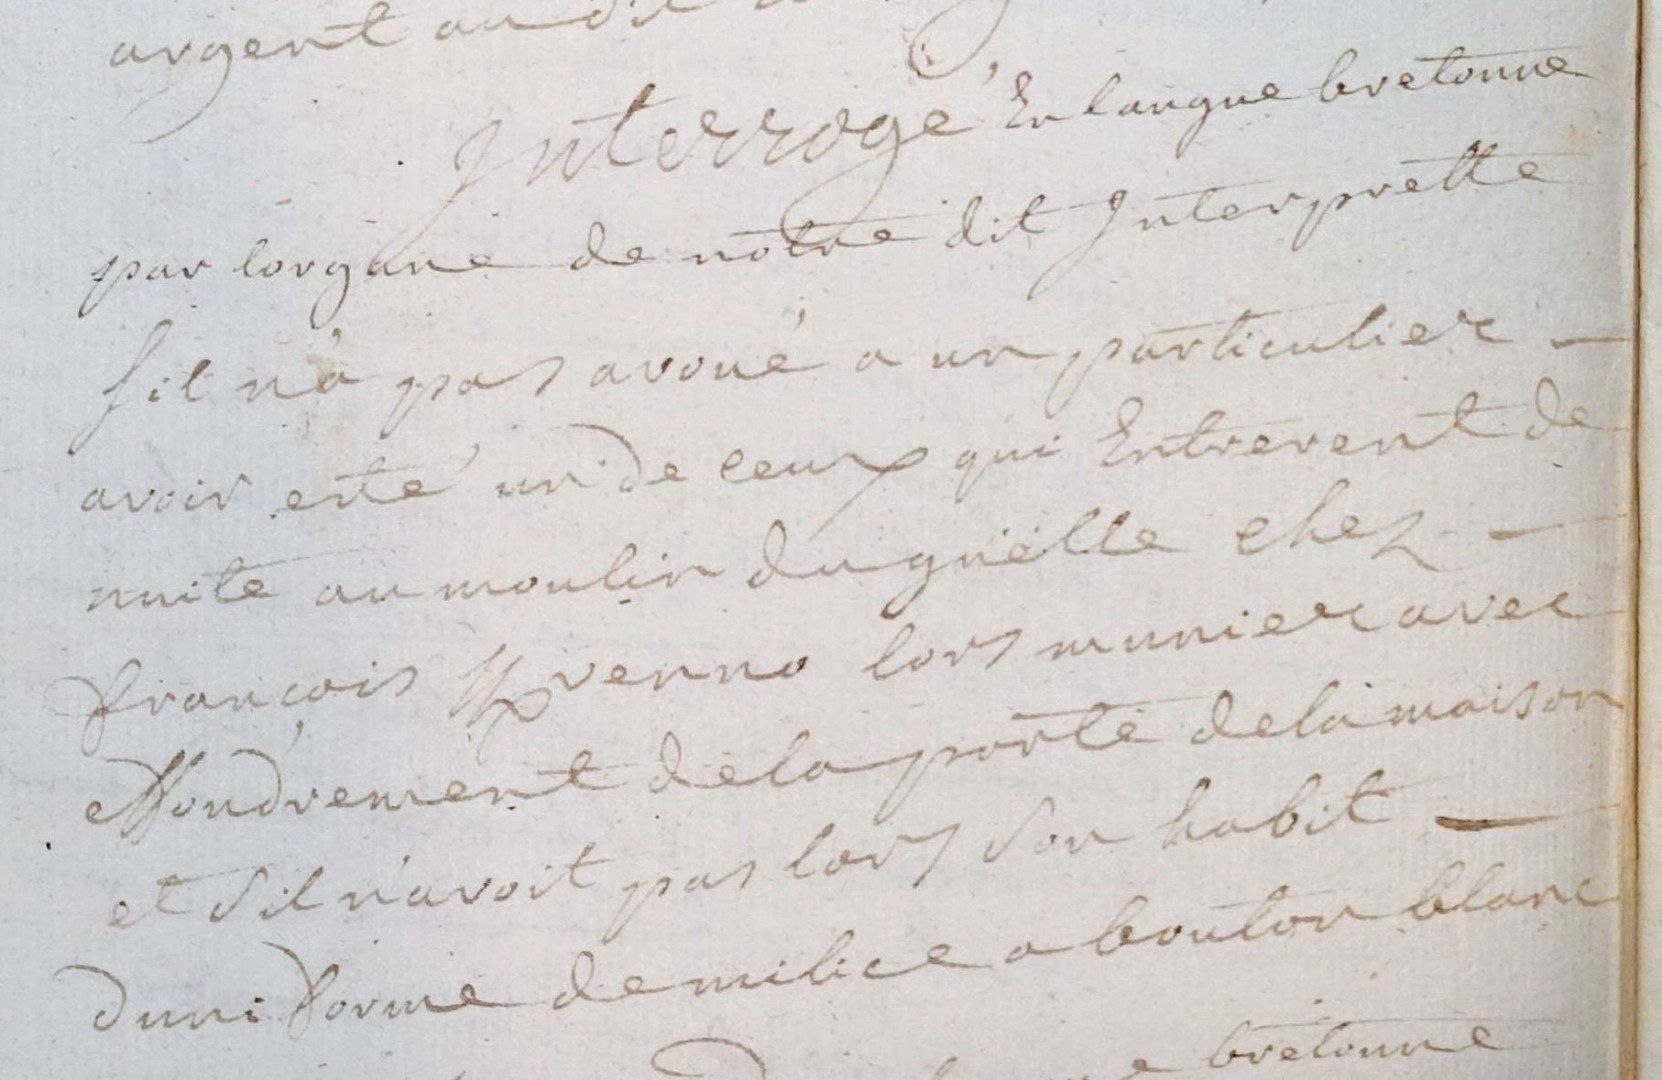 argent au dit
Interrogé En langue bretonne
par lorgane de notre dit Interprette
sil n'a pas avoué a un particulier –
avoir esté un de ceux qui Entrerent de
nuite au moulin du guëlle chez –
francois Kvenno lors munier avec
effondrement de la porte de la maison
et sil n'avoit pas lors son habit –
duniforme de milice a bouton blanc
bretonne